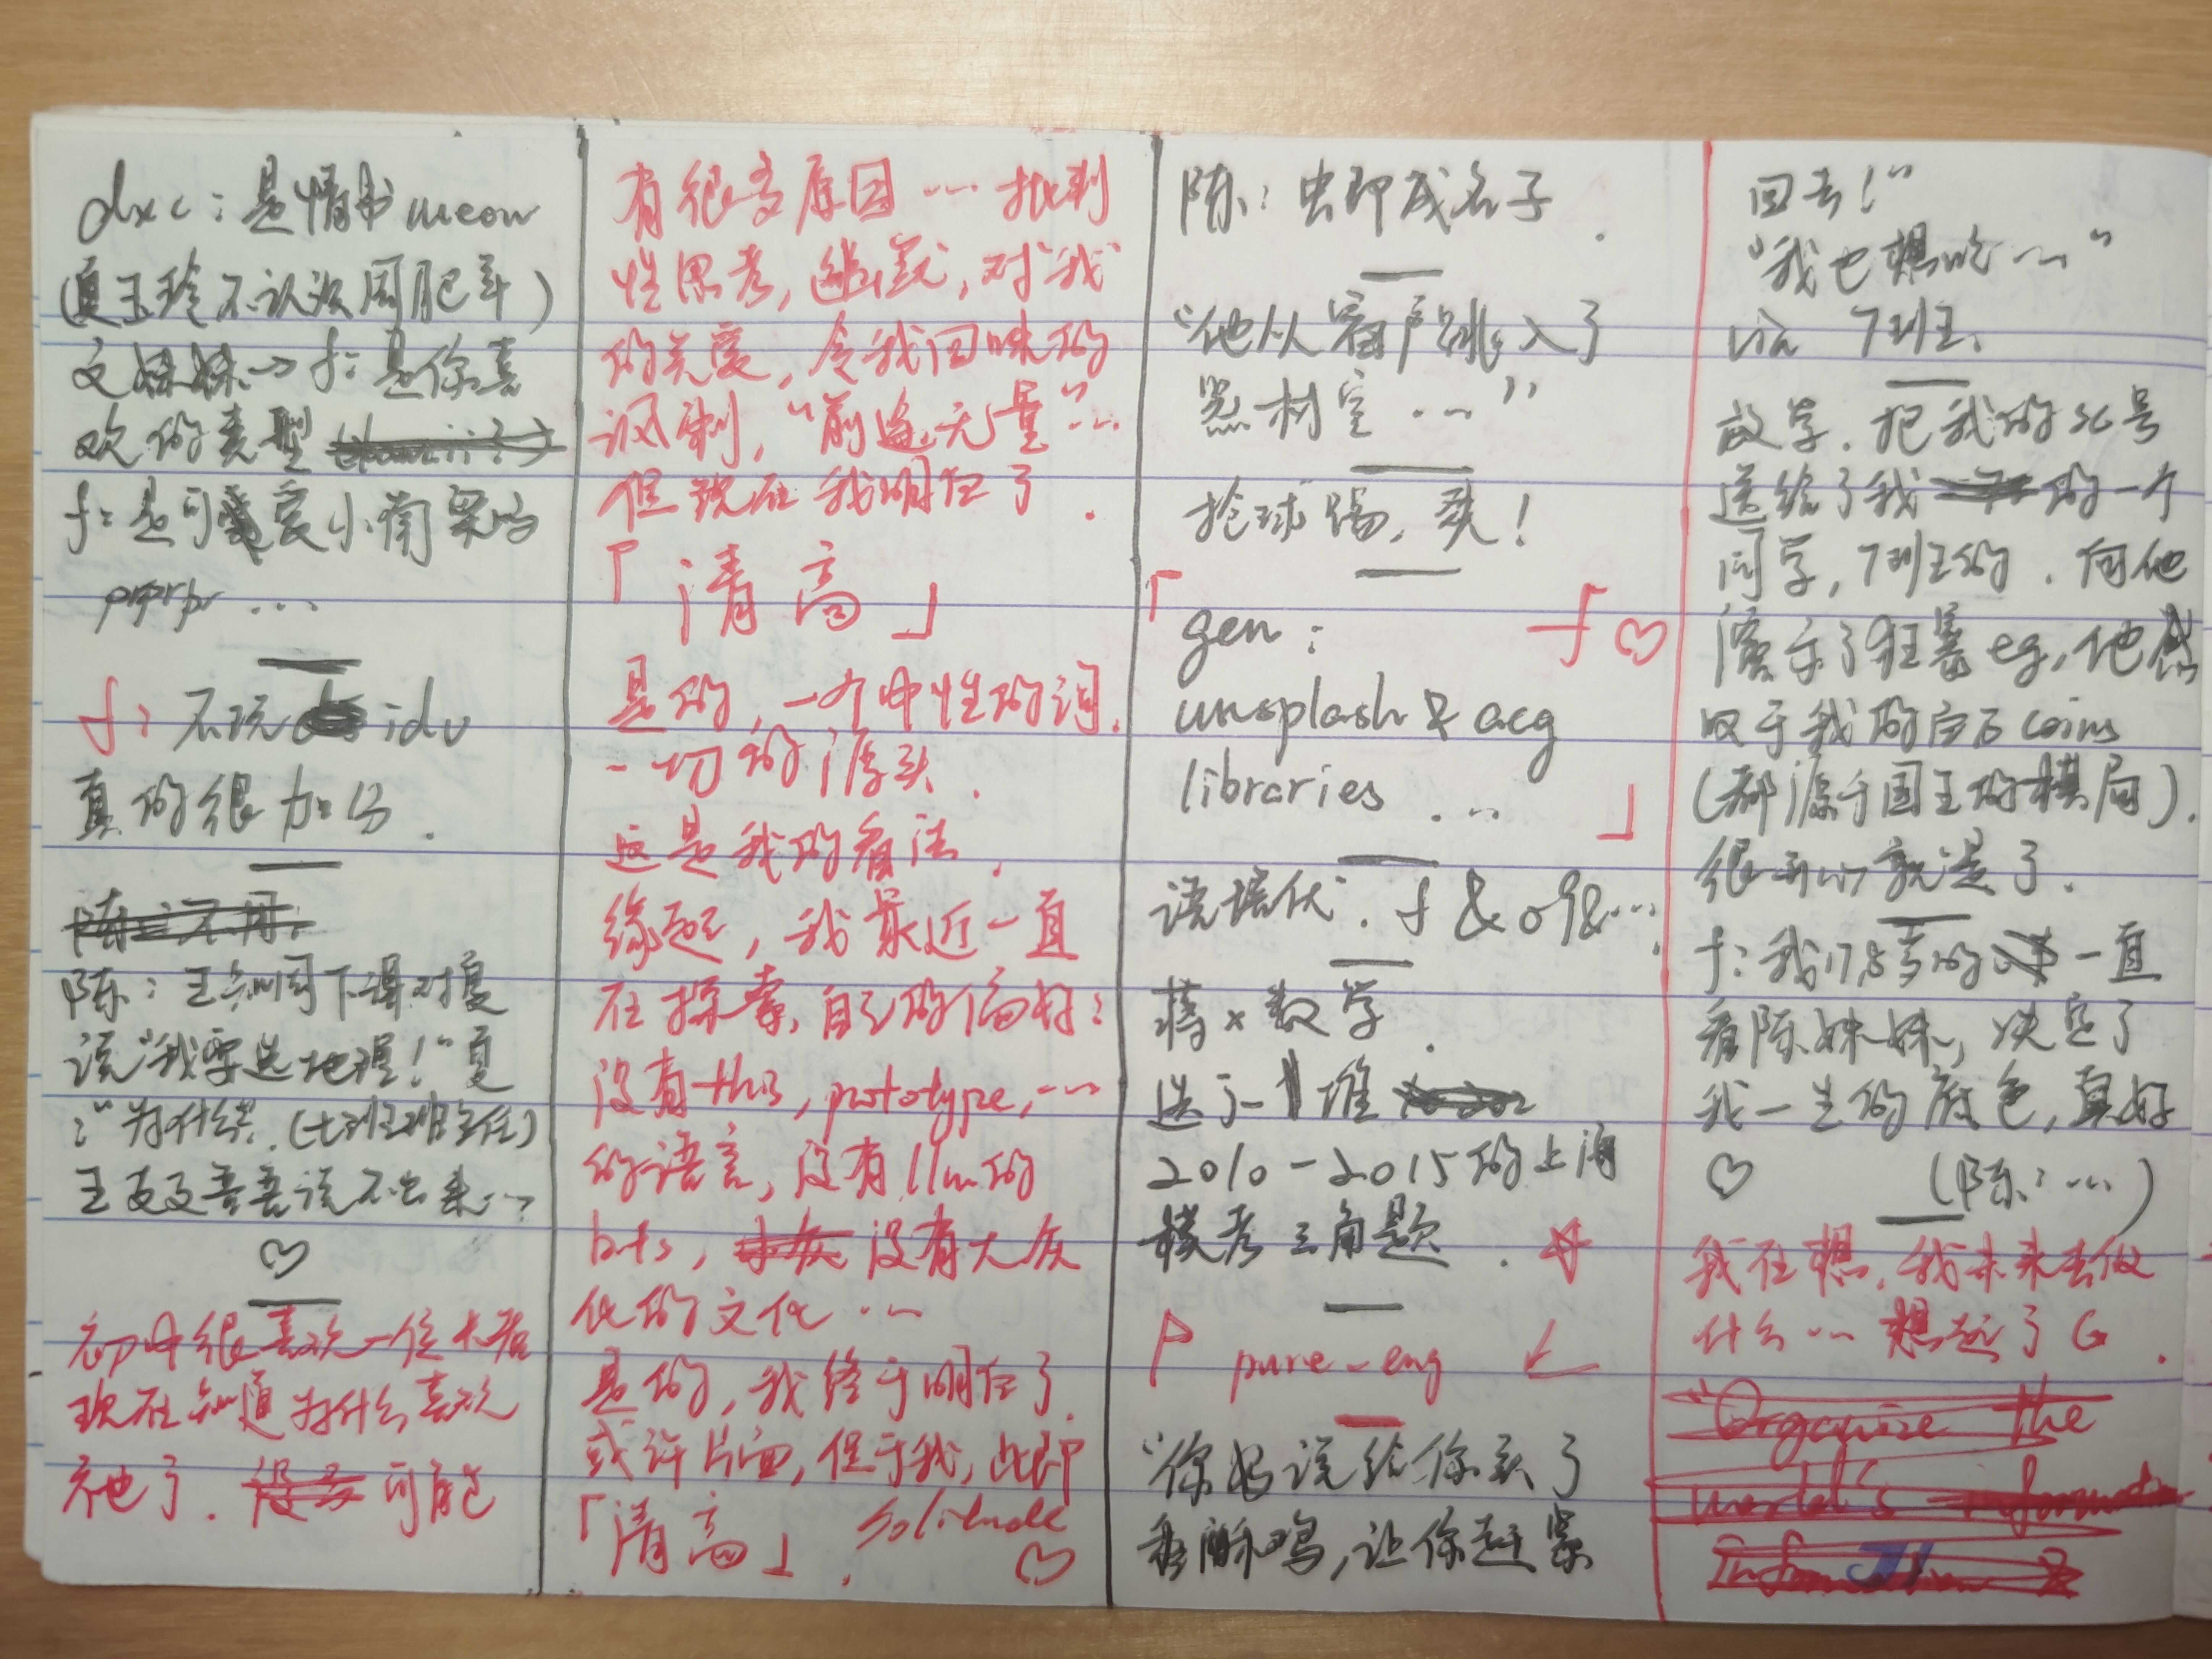 dxc：是情书 meow
(夏玉玲不认识周肥年)
文妹妹→ f：是你喜
欢的类型
f：是可爱小南梁吗
prprpr ...
f：不玩 idv
真的很加分.
陈：王 下课对夏
说"我要选地理！"夏
："为什么". (七班班主任)
王支支吾吾说不出来...
♡
初中很喜欢一位老师
现在知道为什么喜欢
他了. 可能
有很多原因 ... 批判
性思考, 幽默, 对"我"
的关爱, 令我回味的
讽刺, "前途无量"...
但现在我明白了.
「清高」
是的, 一个中性的词.
一切的源头.
这是我的看法.
缘起, 我最近一直
在探索, 自己的偏好：
没有 this, prototype, ...
的语言, 没有 llm 的
bots, 没有大灰
化的文化 ...
是的, 我终于明白了.
或许片面, 但于我, 此即
「清高」. solitude
♡
陈：虫即成名子.
"他从窗户跳入了
器材室 ..."
抢球踢, 爽！
「gen： f ♡
unsplash & acg
libraries ... 」
说培优. f & o9&...
蒋x数学.
选了一堆
2010-2015的上海
模考三角题.
pure-eng
"你妈说给你买了
香酥鸡, 让你赶紧
回去！"
"我也想吃 ..."
via 7班王.
放学. 把我的sc号
送给了我 的一个
同学, 7班的. 向他
演示了狂暴eg, 他感
叹于我的白石coins
(都源于国王的棋局).
很 就是了.
f：我17,8岁的 一直
看陈妹妹, 决定了
我一生的底色, 真好
♡ (陈：...)
我在想, 我未来去做
什么 ... 想起了G.
"Organize the
world's
Information &